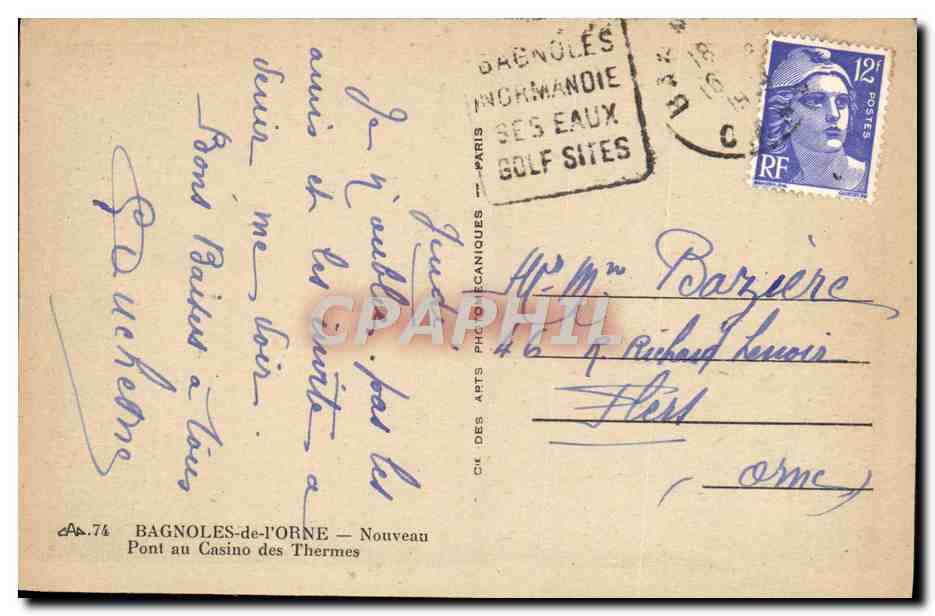 BAGNOLES
NORMANDIE
SES EAUX
GOLF SITES
12F
POSTES
RF
Jeudi
Je n'oublie pas les
amis et les invite a
venir me voir.
Bons Baisers à tous
Mr Mme Bazière
46 r. Richard Lenoir
Flers
(Orne)
CIE DES ARTS PHOTOMECANIQUES — PARIS
CPAPHIL
CAP.74 BAGNOLES-de-l'ORNE — Nouveau
Pont au Casino des Thermes